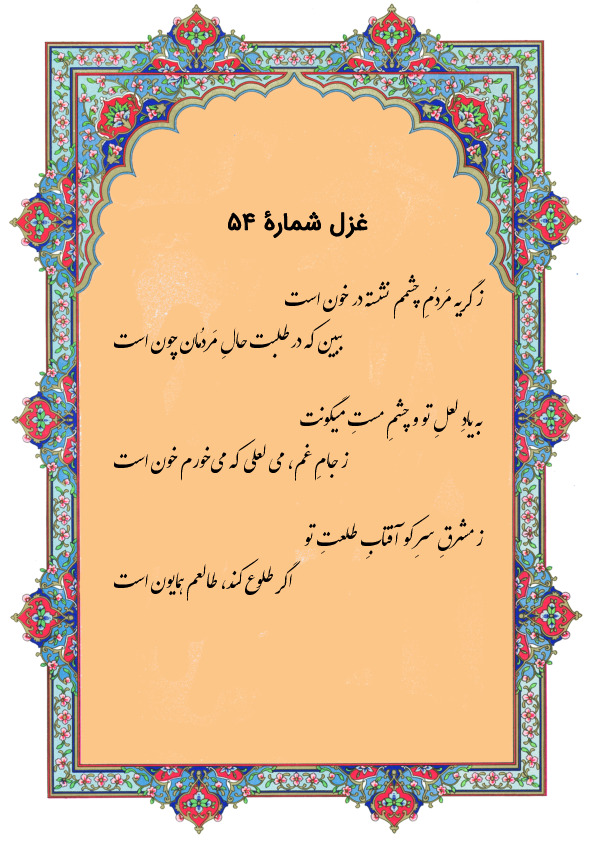 غزل شمارهٔ ۵۴
ز گریه مَردُمِ چشمم نشسته در خون است
ببین که در طلبت حالِ مَردُمان چون است
به یادِ لعلِ تو و چشمِ مستِ میگونت
ز جامِ غم، می لعلی که می‌خورم خون است
ز مشرقِ سرِ کو آفتابِ طلعتِ تو
اگر طلوع کند، طالعم همایون است